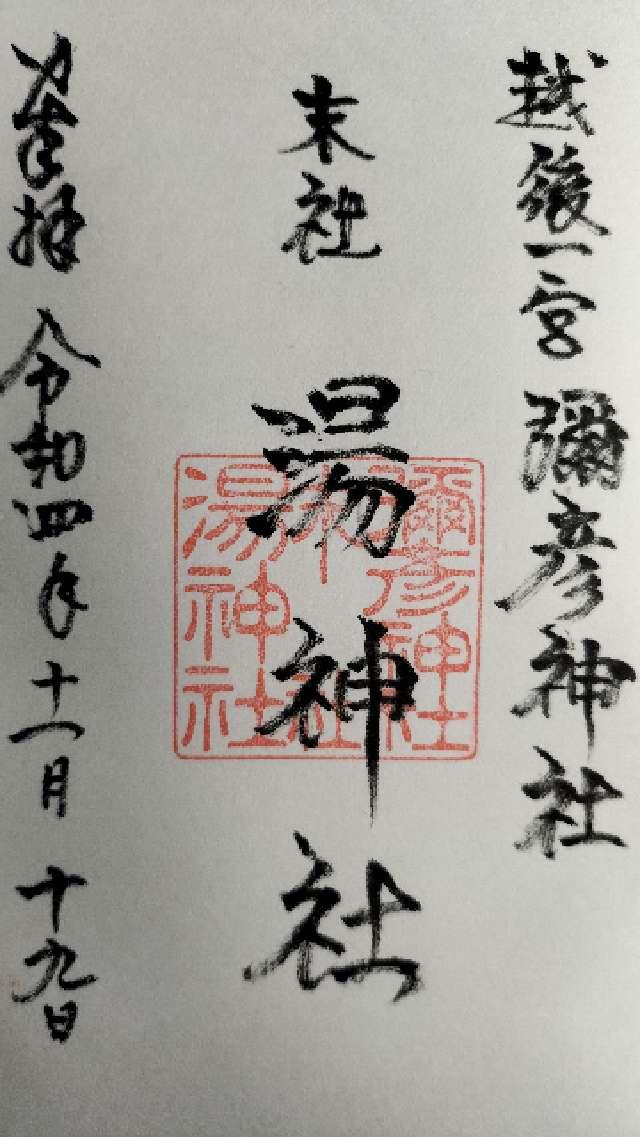 越後一宮 彌彦神社
末社 湯神社
奉拝 令和四年十一月十九日
彌彦神社
末社
湯神社